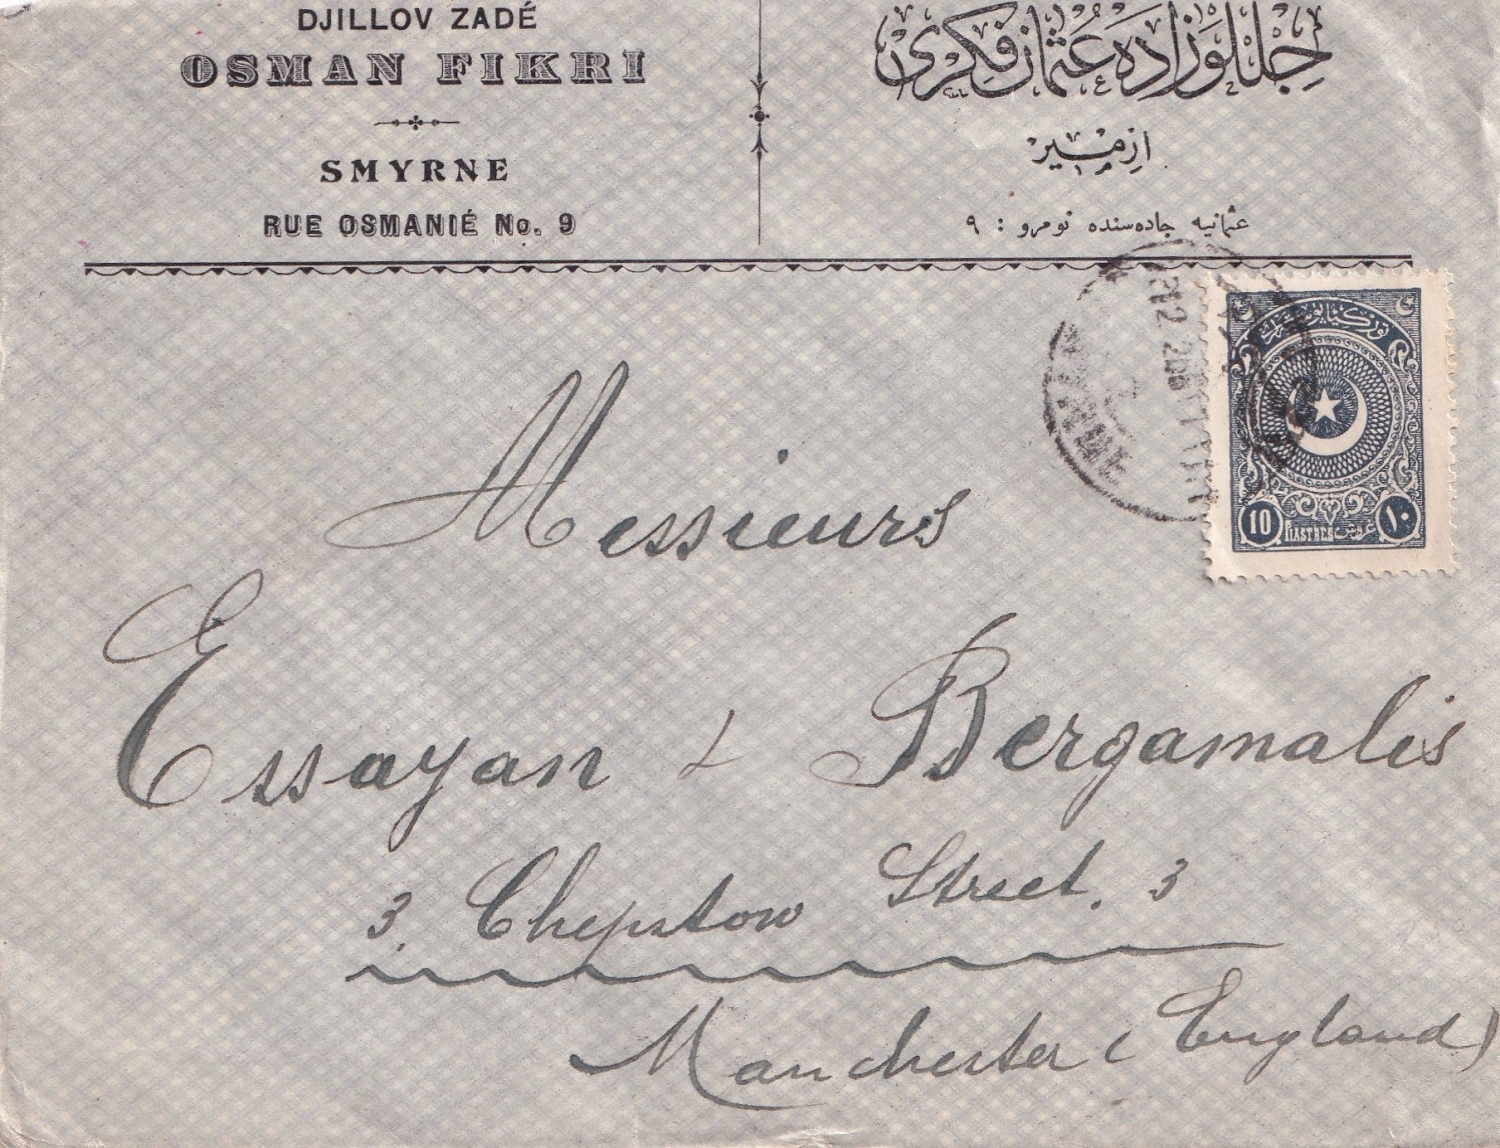 DJILLOV ZADÉ
OSMAN FIKRI
SMYRNE
RUE OSMANIÉ No. 9
جللوزاده عثمان فكری
ازمير
عثمانيه جاده‌سنده نومرو : ٩
10 PIASTRES غروش ١٠
Messieurs
Essayan & Bergamalis
3. Chepstow Street. 3
Manchester (England)